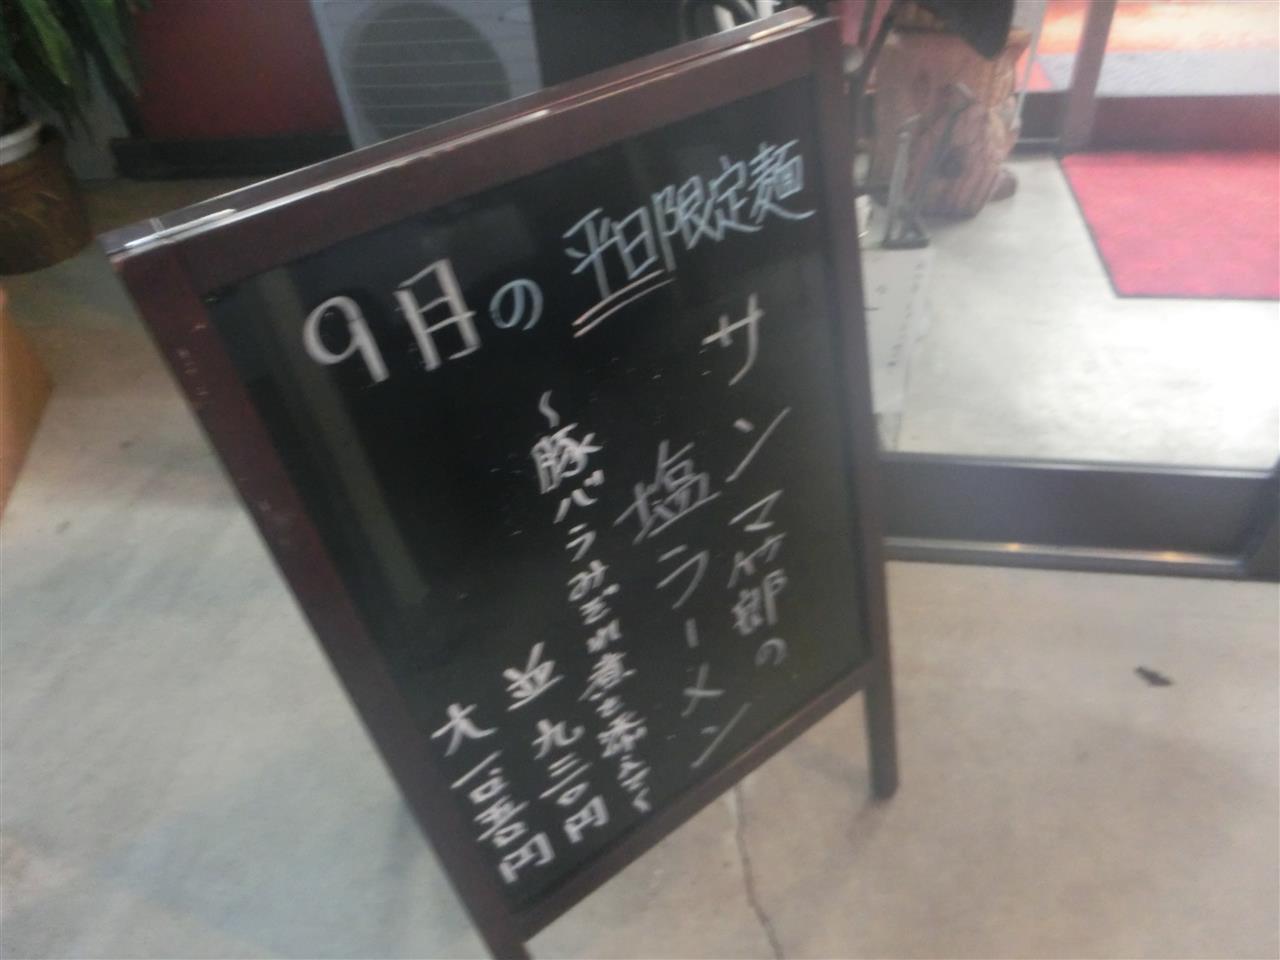 9月の平日限定麺
サンマ節の
塩ラーメン
~豚バラみぞれ煮を添えて~
並 九二〇円
大 一〇五〇円